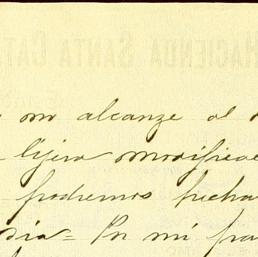 HACIENDA SANTA CAT
mi alcanze al
lijera modificac
podremos fecha
dia = Por mi pa